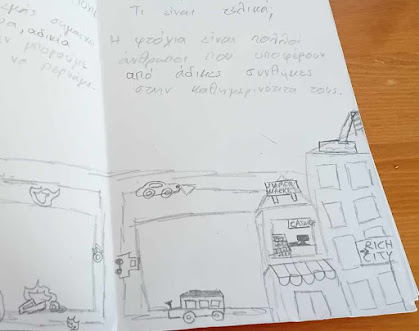 σημαίνει
αδικία
μπορούμε
να περνάμε.
Τι είναι τελικά;
Η φτώχια είναι πολλοί
άνθρωποι που υποφέρουν
από άδικες συνθήκες
στην καθημερινότητα τους.
RICH
CITY